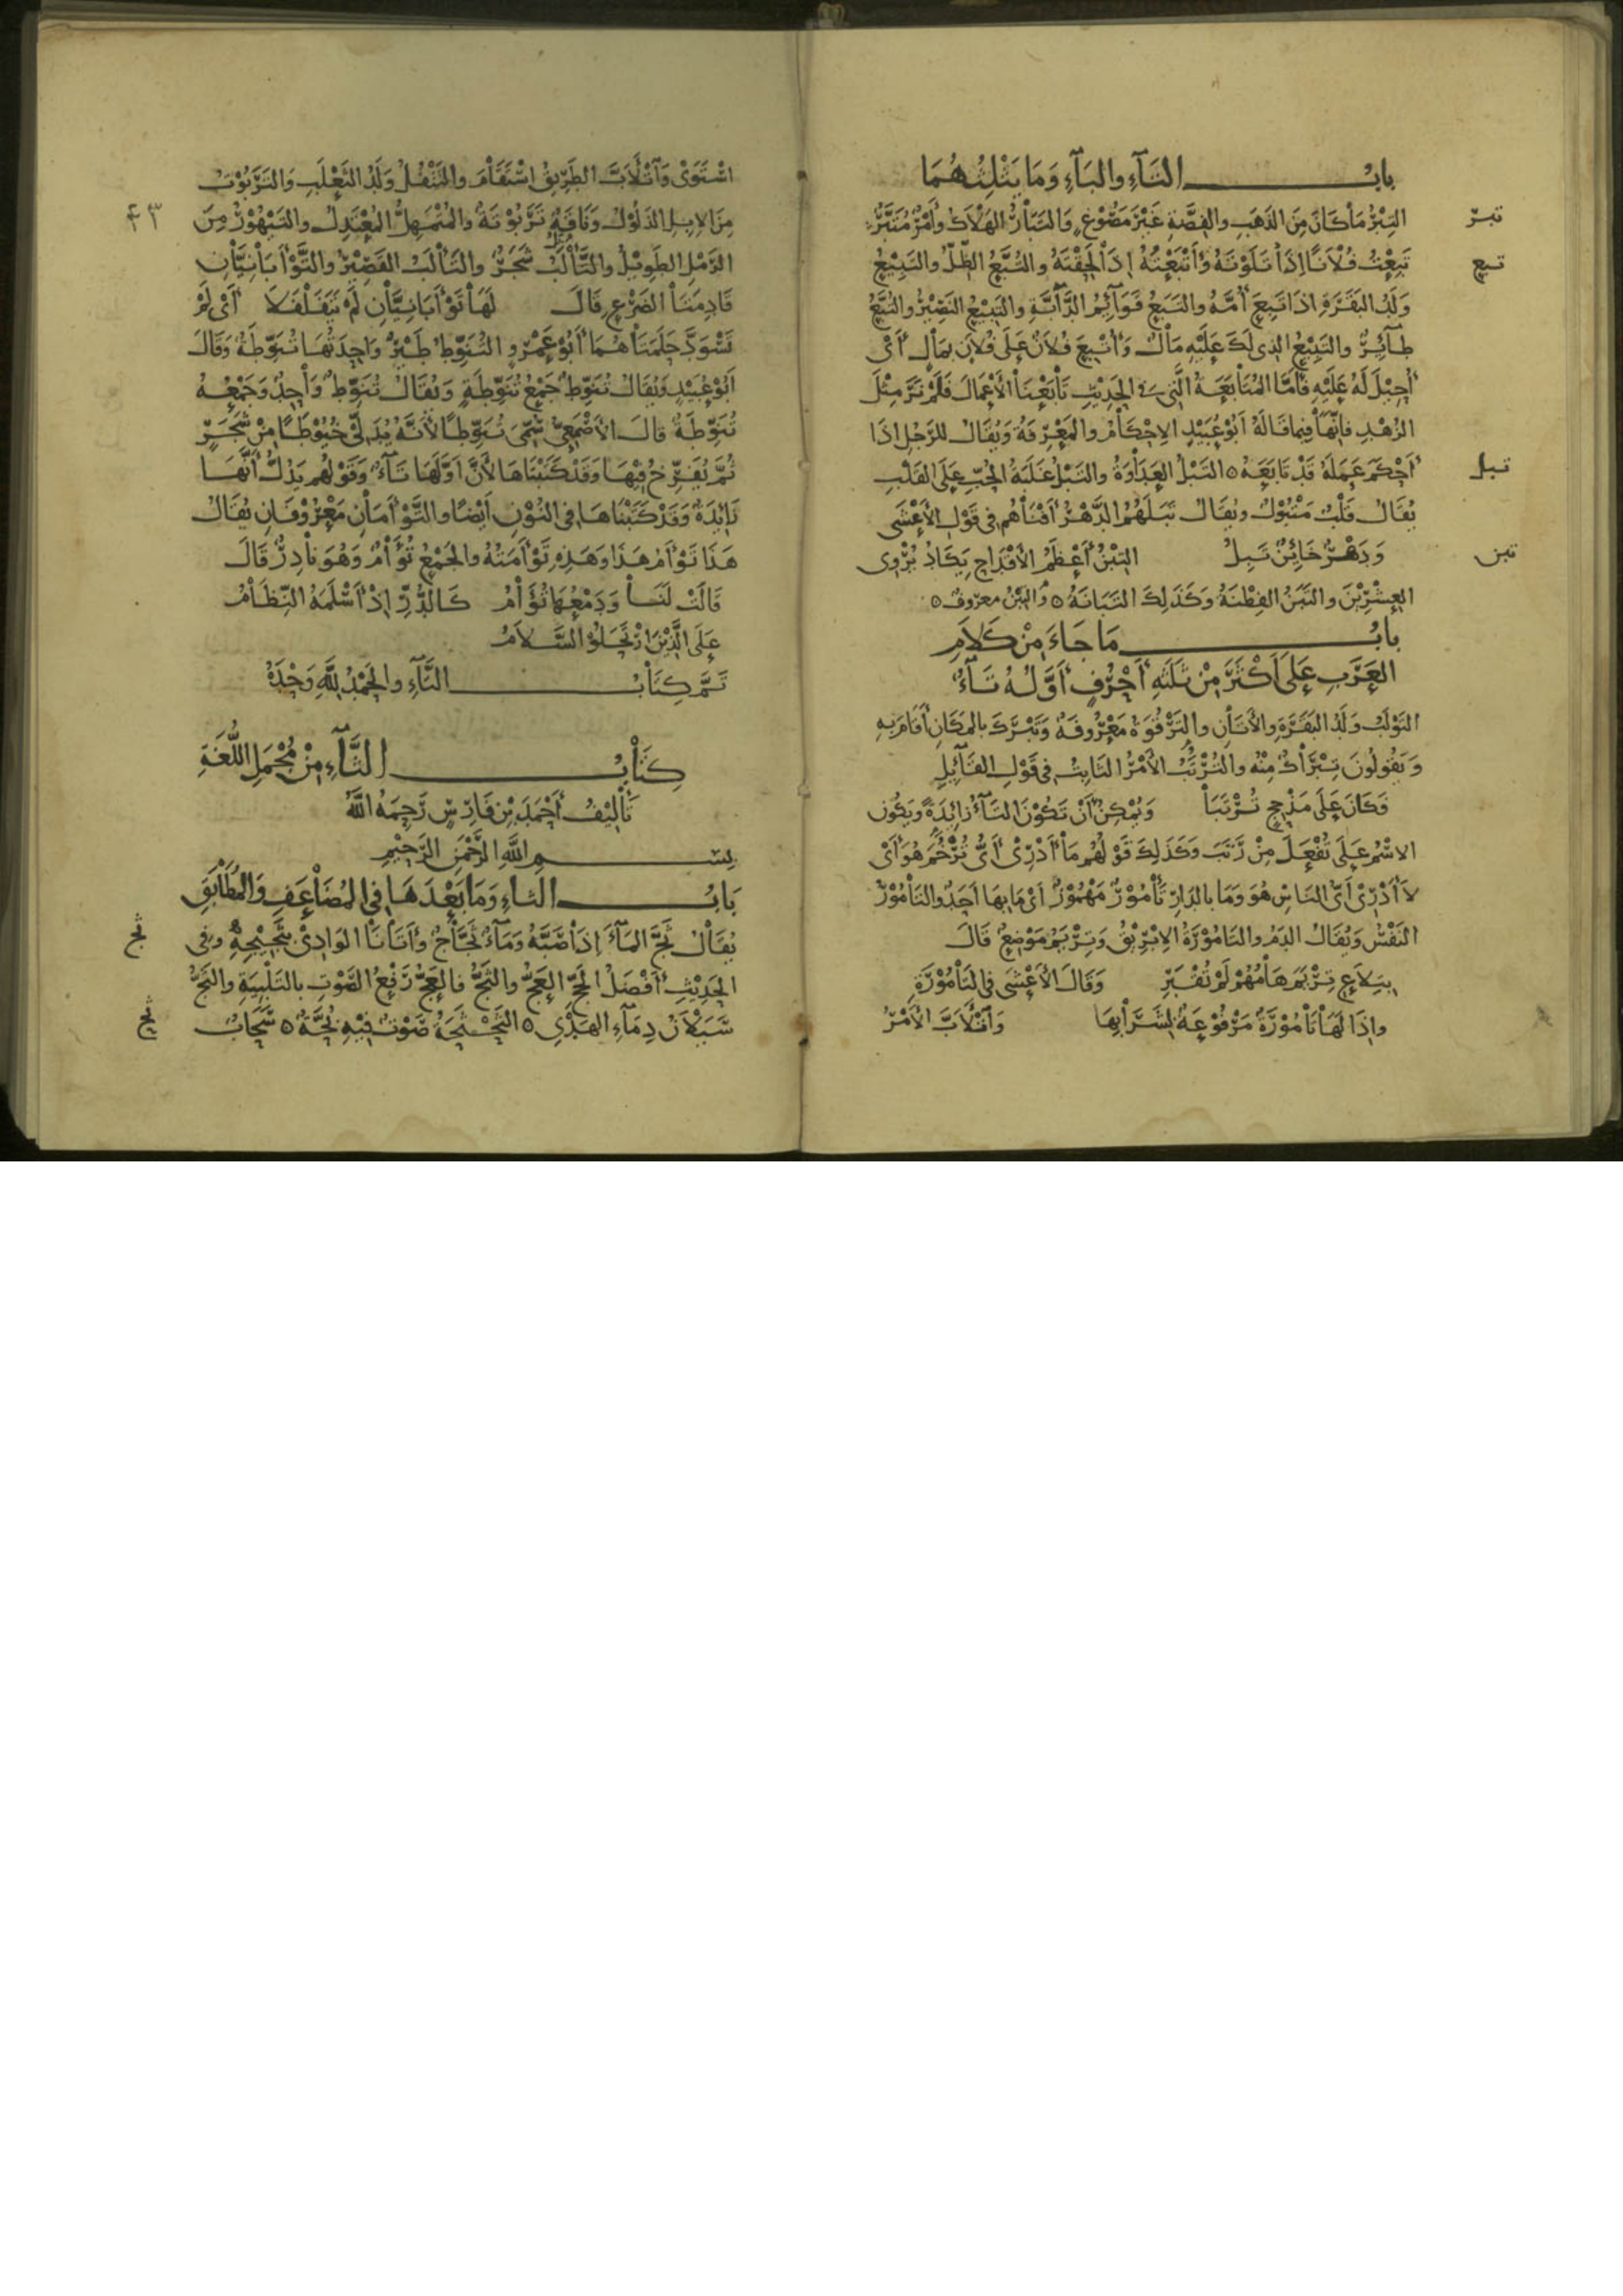 باب التاء والباء وما يثلثهما
تبر
التبر ما كان من الذهب والفضة غير مصوغ والتبار الهلاك وأمر متبر
تبع
تبعت فلانا اذا تلوته وأتبعته إذا لحقته والتبع الظل والتبيع
ولد البقرة اذا تبع أمه والتبع قوائم الدابة والتبيع النصير والتبع
طائر والتبيع الذي لك عليه مال وأتبع فلان على فلان بمال أي
أحيل له عليه فأما المتابعة التي في الحديث تابعنا الأعمال فلم نر مثل
الزهد فانها فيما قاله أبو عبيد الإحكام والمعرفة ويقال للرجل اذا
تبل
أحكم عمله قد تابعه ه التبل العداوة والتبل غلبة الحب على القلب
يقال قلب متبول ويقال تبلهم الدهر أفناهم في قول الأعشى
تبن
ودهر خائن تبل التبن أعظم الأقداح يكاد يروى
العشرين والتبن الفطنة وكذلك التبانة ه والتبن معروف ه
باب ما جاء من كلام
العرب على أكثر من ثلثه أحرف أوله تاء
التولب ولد البقرة والأتان والترقوة معروفة وتبرك بالمكان أقام به
ويقولون تبراك منه والترتب الأمر الثابت في قول القائل
فكان على مذحج ترتبا ويمكن أن تكون التاء زائدة ويكون
الاسم على تفعل من رتب وكذلك قولهم ما أدري أي ترخم هو أي
لا أدري أي الناس هو وما بالدار تأمور مهموز أي ما بها أحد والتأمور
النفس ويقال الدم والتامورة الابريق وتريم موضع قال
بتلاع تريم هامهم لم تقبر وقال الأعشى في التامورة
واذا لها تامورة مرفوعة لشرابها وأتلأب الأمر
استوى وأتلأب الطريق استقام والتتفل ولد الثعلب والتربوت
٤٣
من الابل الذلول وناقة تربوتة والمتمهل المعتدل والتيهور من
الرمل الطويل والتألب شجر والتألب القصير والتوأبانيان
قادمتا الضرع قال لها توأبانيان لم يتفلفلا أي لم
تسود حلمتاهما أبو عمرو التنوط طير واحدتها تنوطة وقال
أبو عبيد ويقال تنوط جمع تنوطة ويقال تنوط واحد وجمعه
تنوطة قال الأصمعي سمي تنوطا لأنه يدلي خيوطا من شجر
ثم يفرخ فيها وقد كتبناها لأن أولها تاء وقولهم يدل أنها
زايدة وقد كتبناها في النون أيضا والتوأمان معروفان يقال
هذا توأم هذا وهذه توأمته والجمع تؤام وهو نادر قال
قالت لنا ودمعها تؤام كالدر إذ أسلمه النظام
على الذين ارتحلوا السلام
تم كتاب التاء والحمد لله وحده
كتاب الثاء من مجمل اللغة
تأليف أحمد بن فارس رحمه الله
بسم الله الرحمن الرحيم
باب الثاء وما بعدها في المضاعف والمطابق
ثج
يقال ثج الماء إذا صبه وماء ثجاج وأتانا الوادي بثجيجه وفي
الحديث أفضل الحج العج والثج فالعج رفع الصوت بالتلبية والثج
ثح
سيلان دماء الهدي ه الثحثحة صوت فيه بحة ه سحاب